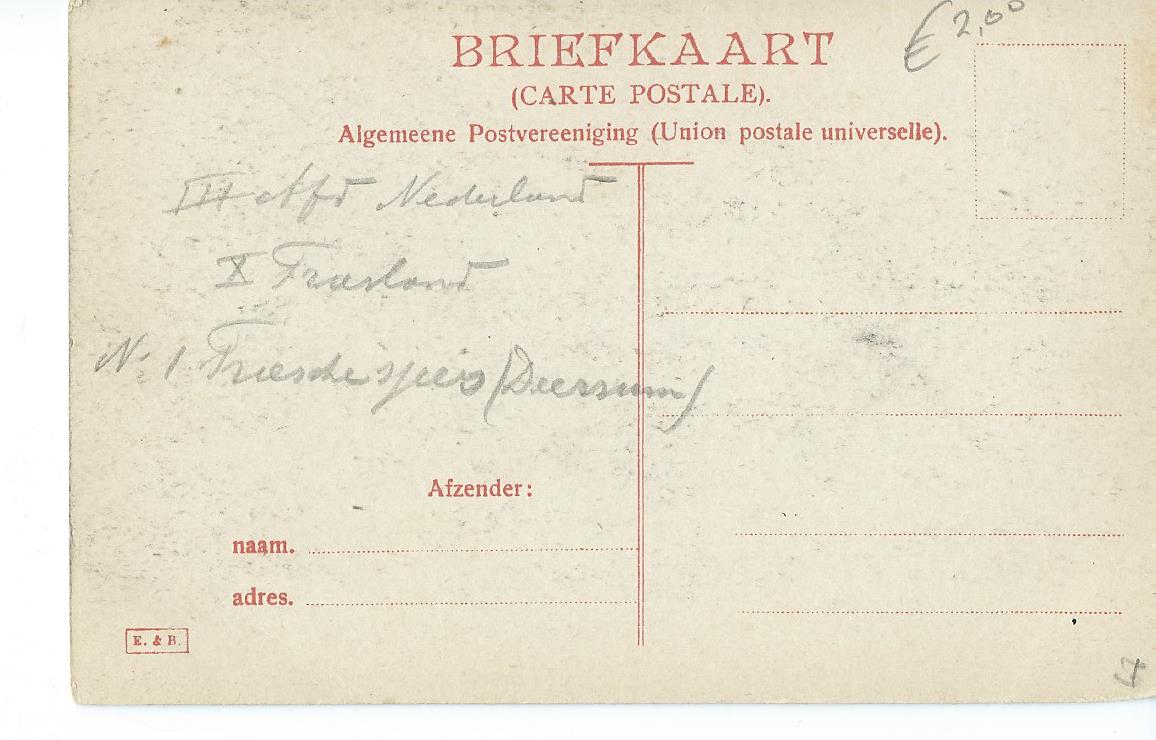 € 2,00
BRIEFKAART
(CARTE POSTALE).
Algemeene Postvereeniging (Union postale universelle).
III Afd Nederland
X Friesland
No 1 Friesche (Deersum)
Afzender:
naam.
adres.
E. & B.